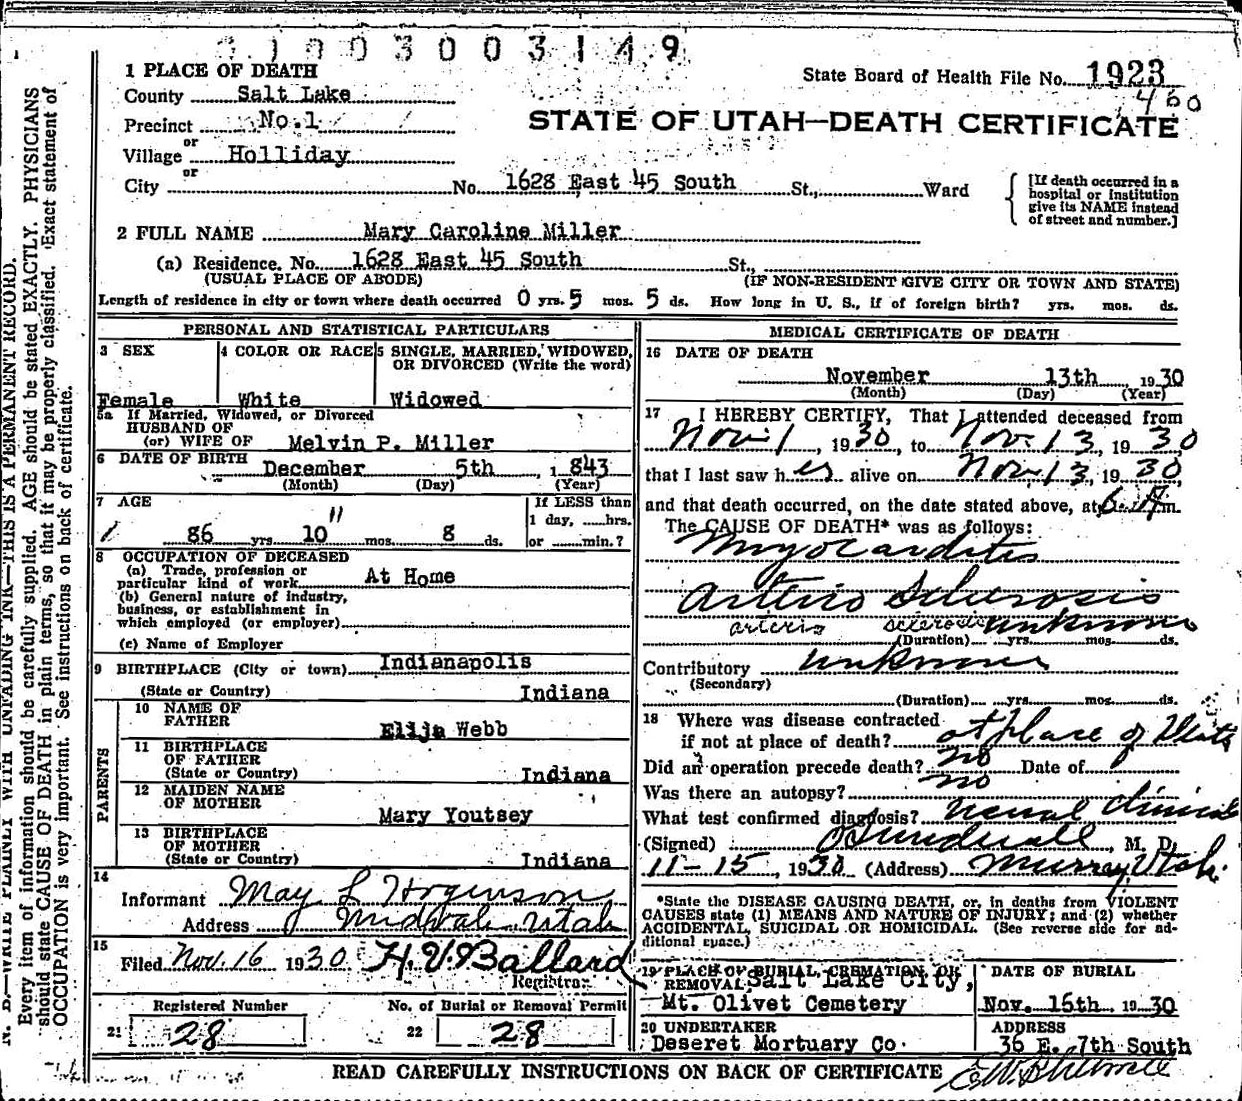 3003149
1 PLACE OF DEATH
State Board of Health File No. 1923
460
County Salt Lake
STATE OF UTAH—DEATH CERTIFICATE
Precinct No.1
or
Village Holliday
or
City No. 1628 East 45 South St., Ward
[If death occurred in a hospital or institution give its NAME instead of street and number.]
2 FULL NAME Mary Caroline Miller
(a) Residence. No. 1628 East 45 South St.,
(USUAL PLACE OF ABODE) (IF NON-RESIDENT GIVE CITY OR TOWN AND STATE)
Length of residence in city or town where death occurred 0 yrs. 5 mos. 5 ds. How long in U. S., if of foreign birth? yrs. mos. ds.
PERSONAL AND STATISTICAL PARTICULARS
3 SEX
Female
4 COLOR OR RACE
White
5 SINGLE, MARRIED, WIDOWED,
OR DIVORCED (Write the word)
Widowed
5a If Married, Widowed, or Divorced
HUSBAND OF
(or) WIFE OF Melvin P. Miller
6 DATE OF BIRTH
December 5th 1843
(Month) (Day) (Year)
7 AGE
86 yrs. 10 mos. 8 ds.
11
If LESS than
1 day, ......hrs.
or ......min.?
8 OCCUPATION OF DECEASED
(a) Trade, profession or
particular kind of work At Home
(b) General nature of industry,
business, or establishment in
which employed (or employer)
(c) Name of Employer
9 BIRTHPLACE (City or town) Indianapolis
(State or Country) Indiana
PARENTS
10 NAME OF
FATHER Elija Webb
11 BIRTHPLACE
OF FATHER
(State or Country) Indiana
12 MAIDEN NAME
OF MOTHER Mary Youtsey
13 BIRTHPLACE
OF MOTHER
(State or Country) Indiana
14
Informant May L Hogenson
Address Midvale Utah
15
Filed Nov. 16 1930 H. V. Ballard
Registrar
Registered Number
21 28
No. of Burial or Removal Permit
22 28
MEDICAL CERTIFICATE OF DEATH
16 DATE OF DEATH
November 13th 1930
(Month) (Day) (Year)
17 I HEREBY CERTIFY, That I attended deceased from
Nov 1, 1930, to Nov. 13, 1930
that I last saw her alive on Nov. 13, 1930,
and that death occurred, on the date stated above, at 6. A m.
The CAUSE OF DEATH* was as follows:
Myocarditis
Arterio Sclerosis
arterio sclerosis unknown
(Duration) yrs. mos. ds.
Contributory unknown
(Secondary)
(Duration) yrs. mos. ds.
18 Where was disease contracted
if not at place of death? at place of Death
Did an operation precede death? no Date of
Was there an autopsy? no
What test confirmed diagnosis? usual clinical
(Signed) Sundwall, M. D.
11-15, 1930 (Address) Murray, Utah.
*State the DISEASE CAUSING DEATH, or, in deaths from VIOLENT
CAUSES state (1) MEANS AND NATURE OF INJURY; and (2) whether
ACCIDENTAL, SUICIDAL OR HOMICIDAL. (See reverse side for ad-
ditional space.)
19 PLACE OF BURIAL, CREMATION, OR
REMOVAL Salt Lake City,
Mt. Olivet Cemetery
DATE OF BURIAL
Nov. 15th 1930
20 UNDERTAKER
Deseret Mortuary Co.
ADDRESS
36 E. 7th South
READ CAREFULLY INSTRUCTIONS ON BACK OF CERTIFICATE
N. B.—WRITE PLAINLY WITH UNFADING INK—THIS IS A PERMANENT RECORD.
Every item of information should be carefully supplied. AGE should be stated EXACTLY. PHYSICIANS
should state CAUSE OF DEATH in plain terms, so that it may be properly classified. Exact statement of
OCCUPATION is very important. See instructions on back of certificate.